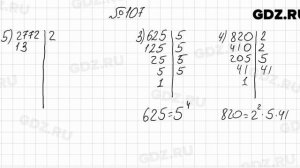 GDZ.RU
№107
5) 2772 | 2
13
3) 625 | 5
125 | 5
25 | 5
5 | 5
1
625=5⁴
4) 820 | 2
410 | 2
205 | 5
41 | 41
1
820=2²·5·41
GDZ.RU